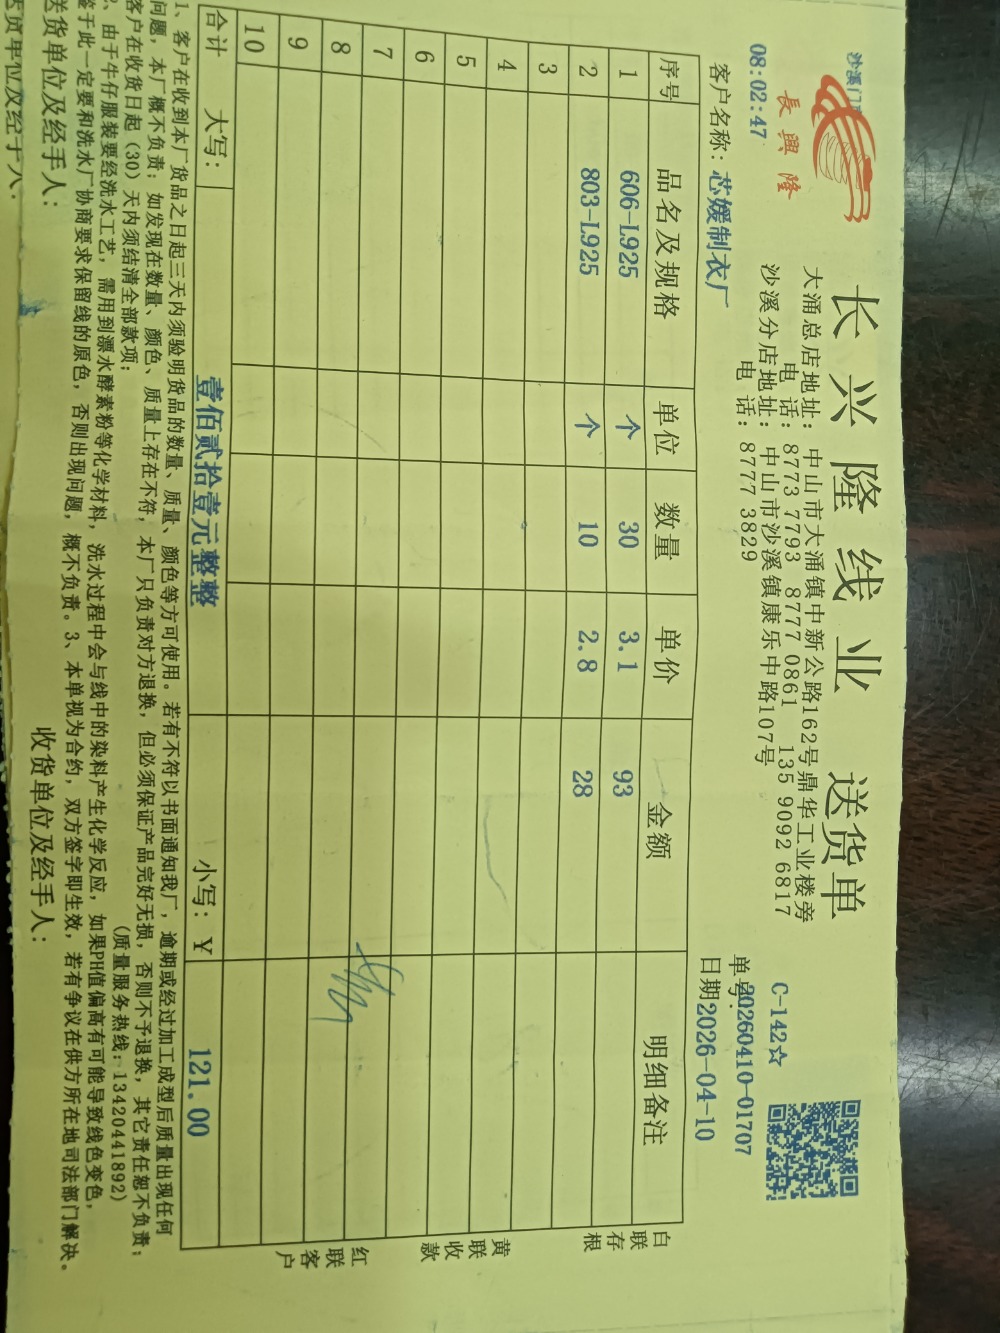 沙溪门
08:02:47
長興隆
长兴隆线业 送货单
大涌总店地址：中山市大涌镇中新公路162号鼎华工业楼旁
电 话：8773 7793 8777 0861 135 9092 6817
沙溪分店地址：中山市沙溪镇康乐中路107号
电 话：8777 3829
C-142☆
单号：20260410-01707
客户名称：芯媛制衣厂
日期2026-04-10
序号 品名及规格 单位 数量 单价 金额 明细备注
1 606-L925 个 30 3.1 93
2 803-L925 个 10 2.8 28
3
4
5
6
7
8
9
10
合计 大写： 壹佰贰拾壹元整整 小写：￥ 121.00
白联存根
黄联收款
红联客户
1、客户在收到本厂货品之日起三天内须验明货品的数量、质量、颜色等方可使用。若有不符以书面通知我厂，逾期或经过加工成型后质量出现任何
问题，本厂概不负责；如发现在数量、颜色、质量上存在不符，本厂只负责对方退换，但必须保证产品完好无损，否则不予退换，其它责任恕不负责；
客户在收货日起（30）天内须结清全部款项； （质量服务热线：13420441892）
2、由于牛仔服装要经洗水工艺，需用到漂水酵素粉等化学材料，洗水过程中会与线中的染料产生化学反应，如果PH值偏高有可能导致线色变色，
鉴于此一定要和洗水厂协商要求保留线的原色，否则出现问题，概不负责。3、本单视为合约，双方签字即生效，若有争议在供方所在地司法部门解决。
送货单位及经手人： 收货单位及经手人：
送货单位及经手人：